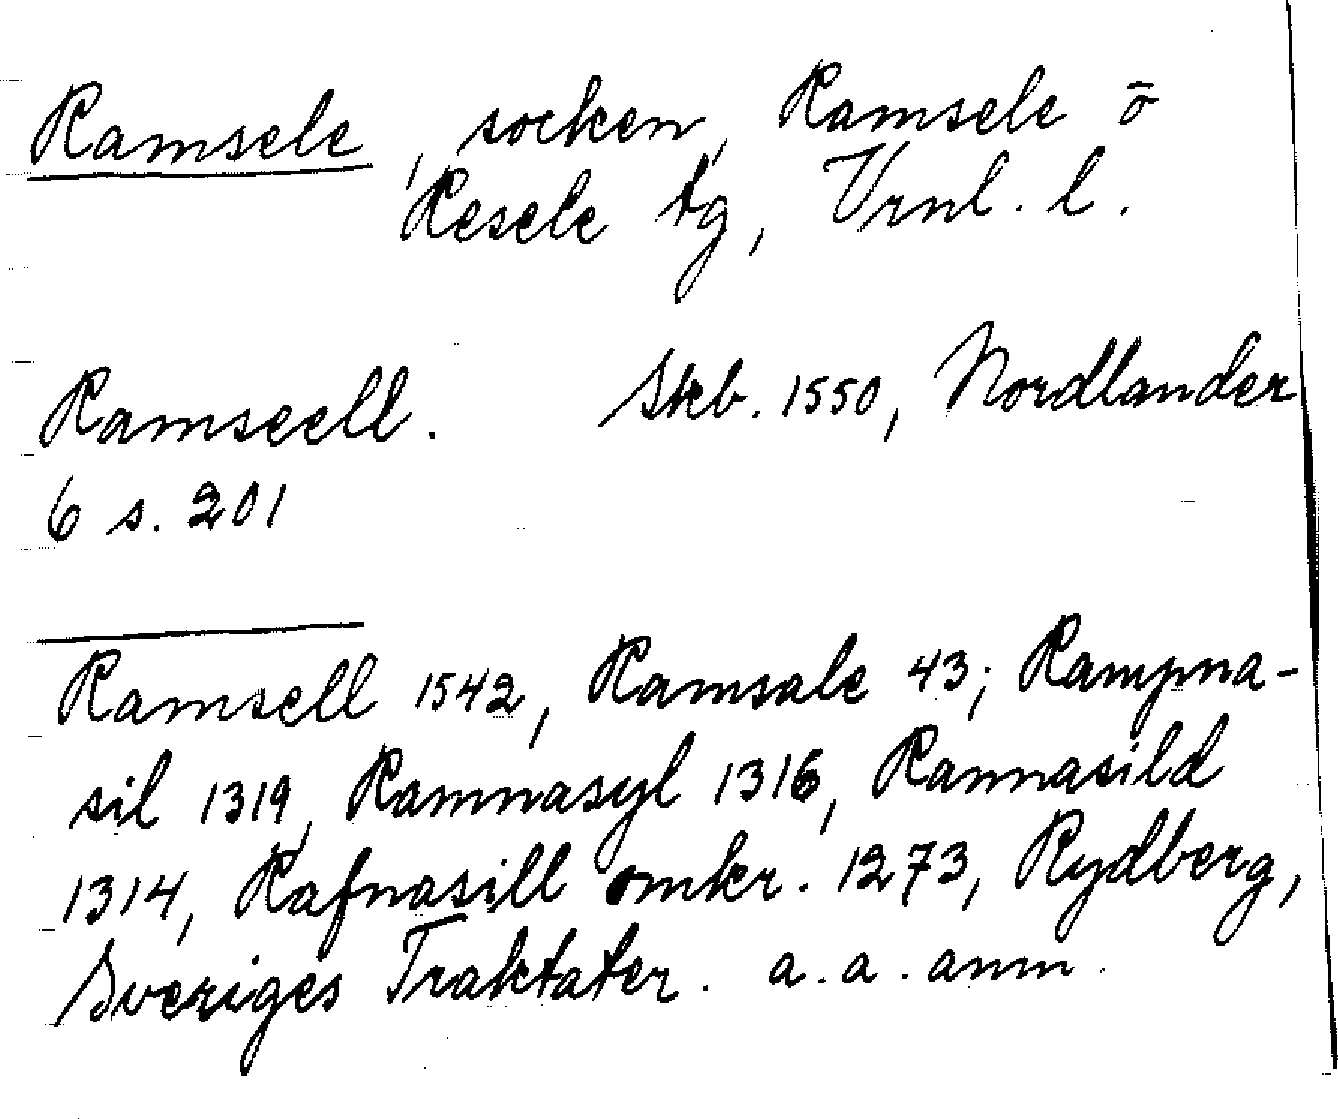 Ramsele, socken, Ramsele o
Resele tg, Vrnl. l.
Ramseell. Skb. 1550, Nordlander
6 s. 201
Ramsell 1542, Ramsale 43; Rampna-
sil 1319, Ramnasyl 1316, Ramnasild
1314, Rafnasill omkr. 1273, Rydberg,
Sveriges Traktater. a.a. anm.